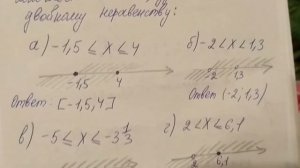 двойному неравенству:
а) -1,5 ⩽ x ⩽ 4 б) -2 < x < 1,3
-1,5 4 -2 1,3
Ответ: [-1,5, 4] Ответ (-2; 1,3)
в) -5 ⩽ x ⩽ -3 1/3 г) 2 < x ⩽ 6,1
2 6,1